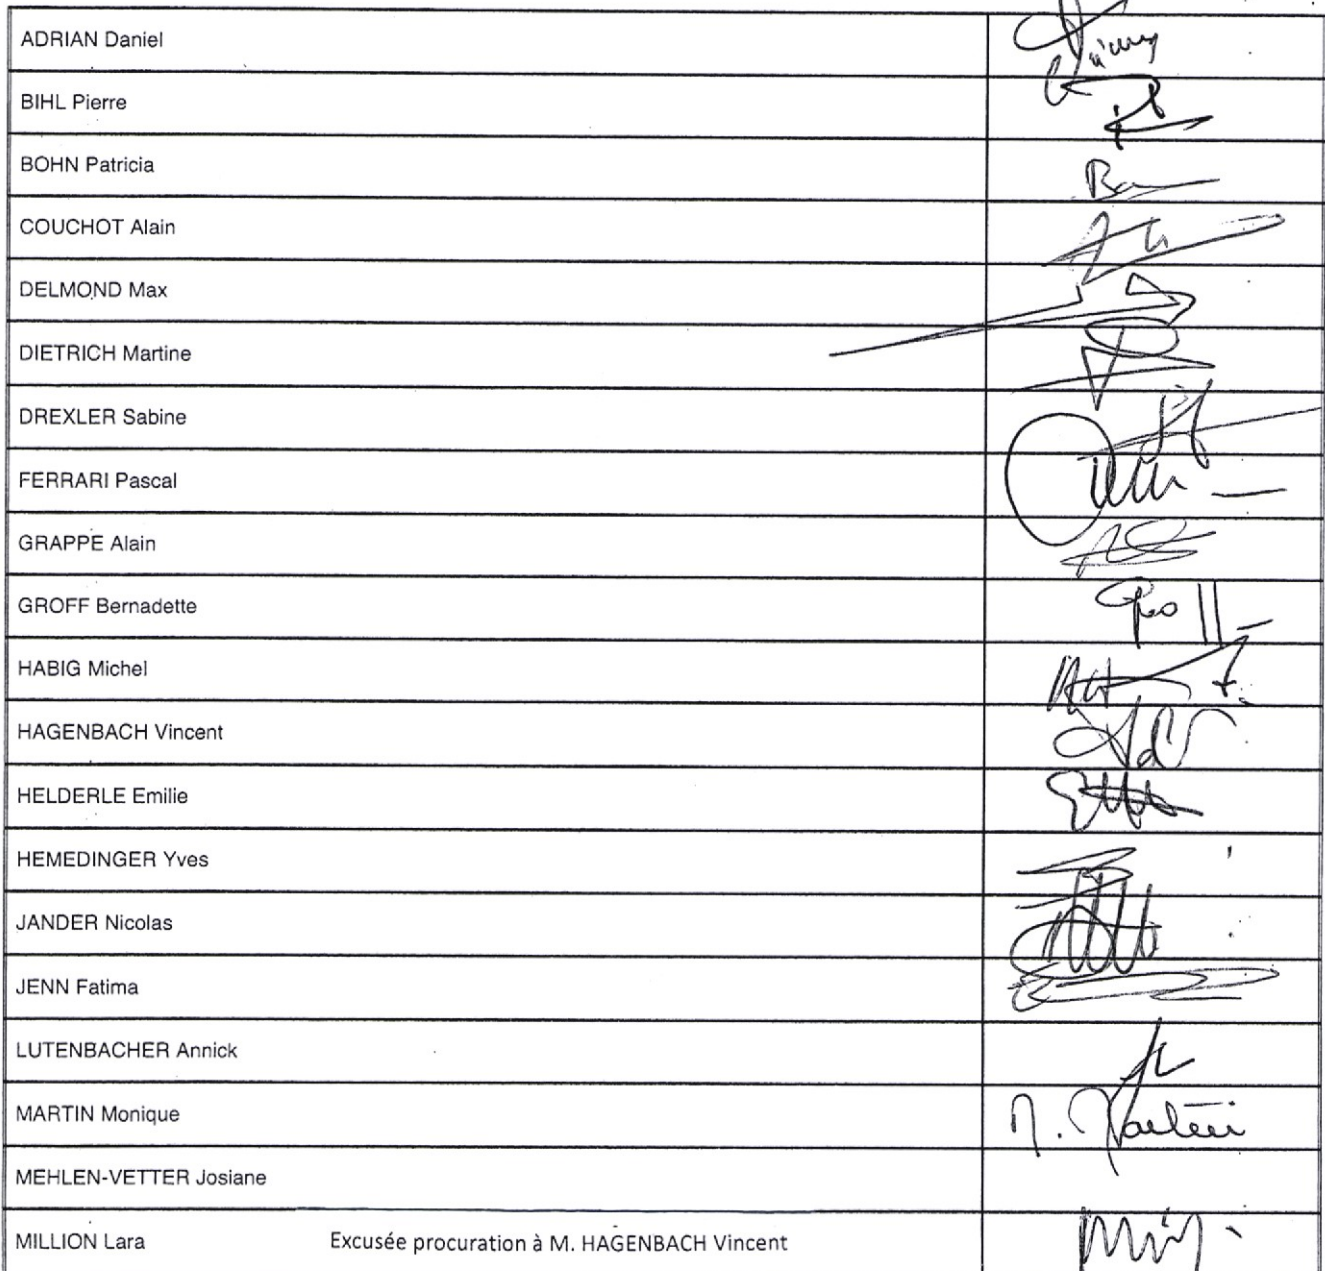 ADRIAN Daniel
BIHL Pierre
BOHN Patricia
COUCHOT Alain
DELMOND Max
DIETRICH Martine
DREXLER Sabine
FERRARI Pascal
GRAPPE Alain
GROFF Bernadette
HABIG Michel
HAGENBACH Vincent
HELDERLE Emilie
HEMEDINGER Yves
JANDER Nicolas
JENN Fatima
LUTENBACHER Annick
MARTIN Monique M. Martin
MEHLEN-VETTER Josiane
MILLION Lara Excusée procuration à M. HAGENBACH Vincent